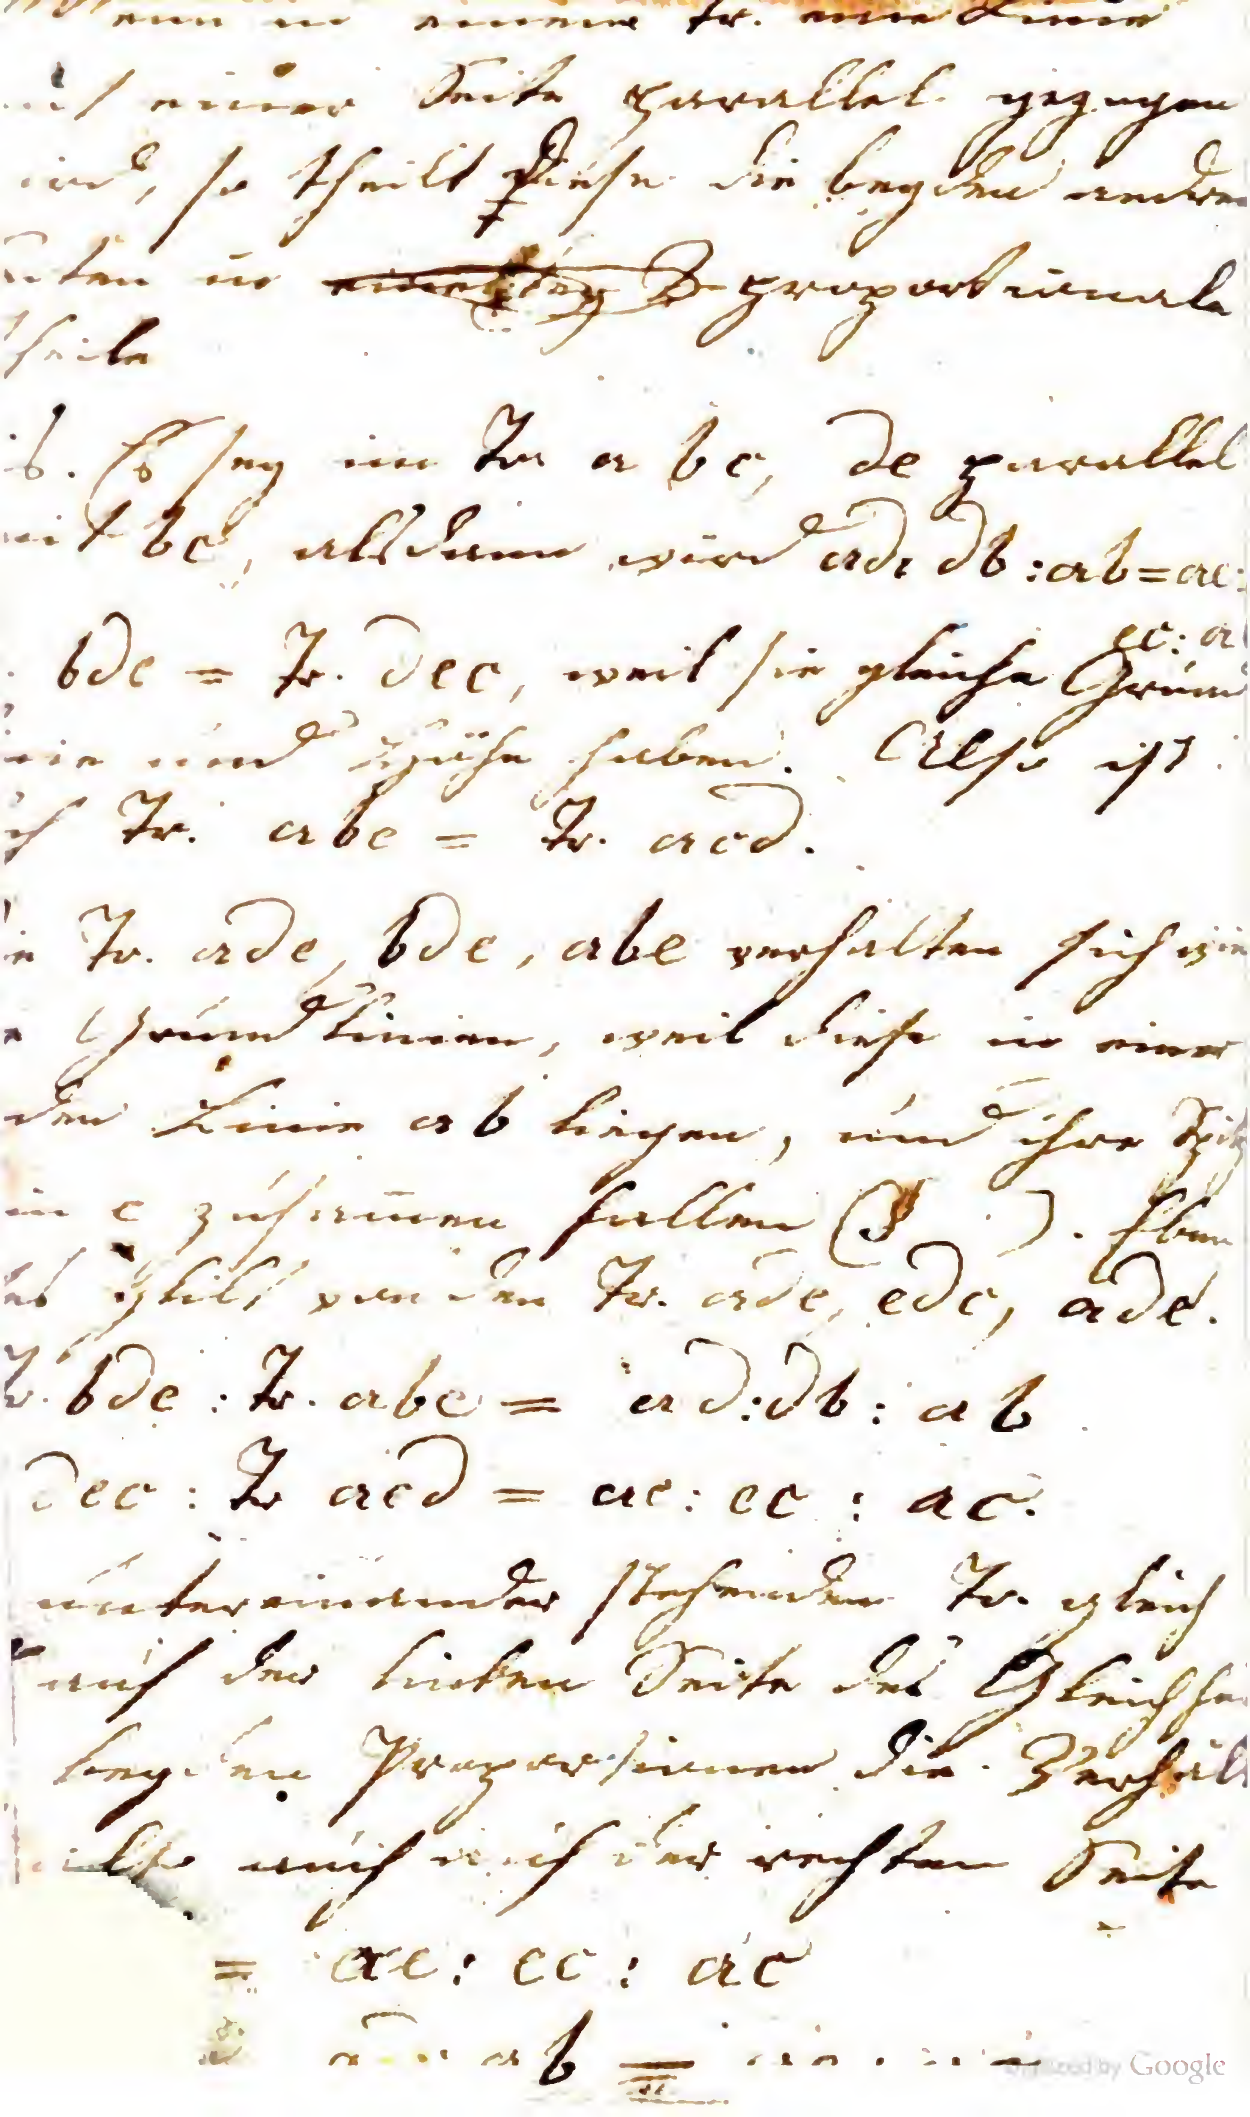 in einem Tr. eine Linie
einer Seite parallel gezogen
wird, so theilt diese die beyden andren
in proportionale
Theile
b. Es sey im Tr. abc, de parallel
mit bc, alsdann wird ad: db :ab=ae:
ec: a
bde = Tr. dec, weil sie gleiche Grund
und Höhe haben. Also ist
Tr. abe = Tr. acd.
Tr. ade, bde, abe verhalten sich wie
Grundlinien, weil diese in einer
Linie ab liegen, und ihre Spitz
in e zusammen fallen ( ). Eben
gilt von den Tr. ade, edc, ade.
Tr. bde : Tr. abe = ad:db: ab
dec : Tr acd = ae: ec : ac.
untereinander stehenden Tr. gleich
auf der linken Seite des Gleichhei
beyden Proportionen die Verhält
also auch auf der rechten Seite
= ae: ec: ac
ab =
Digitized by Google